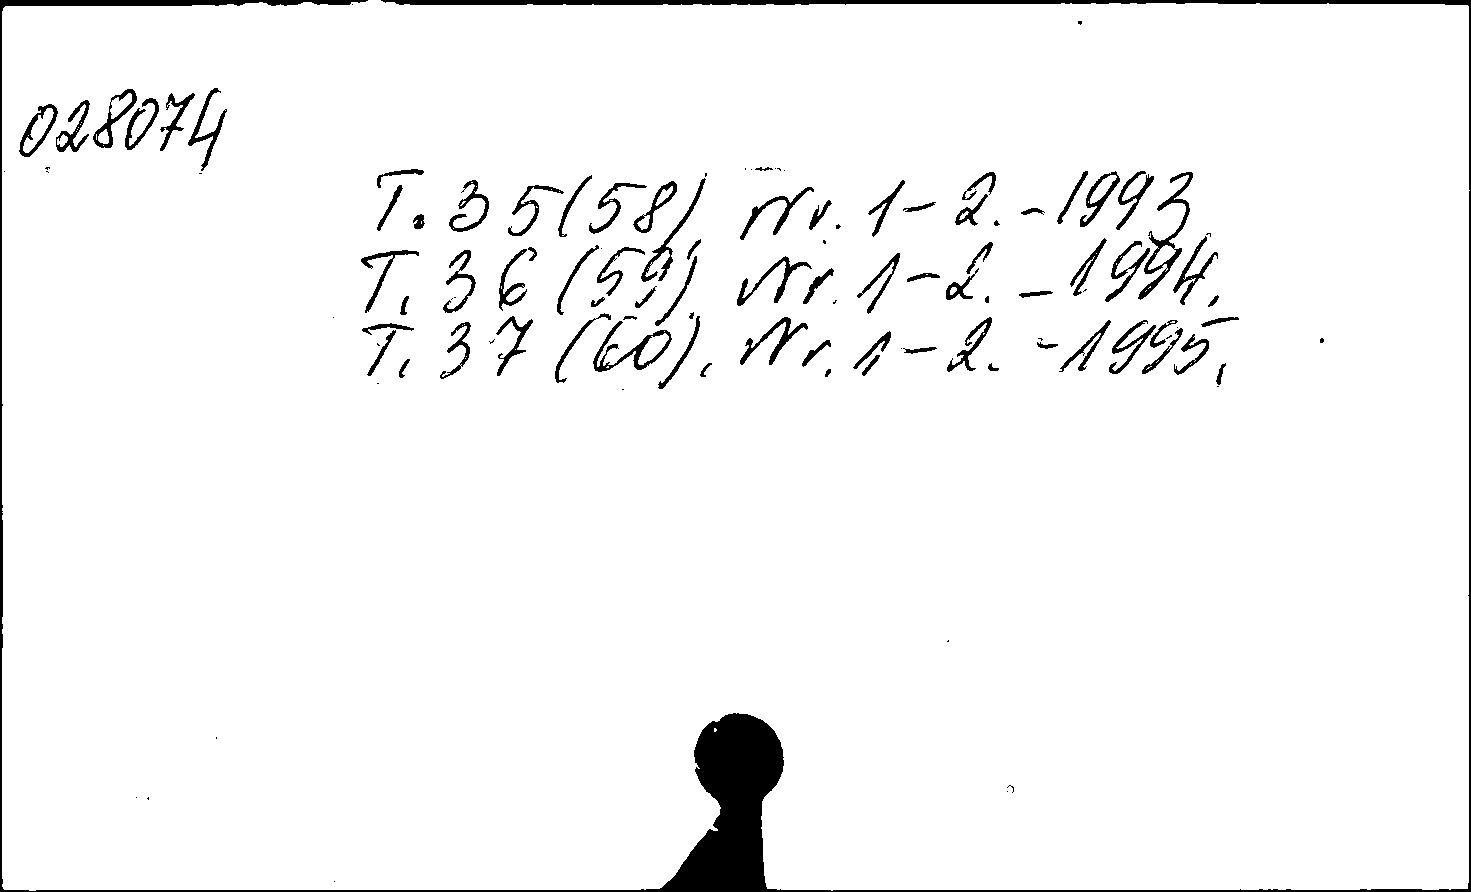 028074
T. 35 (58). Nr. 1-2. - 1993
T. 36 (59). Nr. 1-2. - 1994.
T. 37 (60). Nr. 1-2. - 1995.